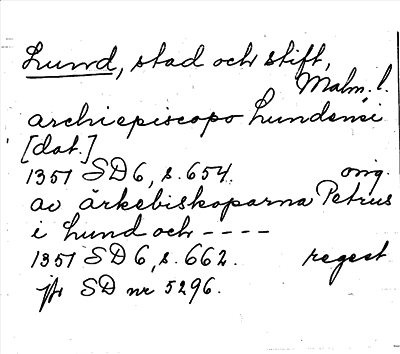 Lund, stad och stift,
Malm. l.
archiepiscopo Lundensi
[dat.]
1351 SD 6, s. 654. orig.
av ärkebiskoparna Petrus
i Lund och ----
1351 SD 6, s. 662. regest
jfr SD nr 5296.